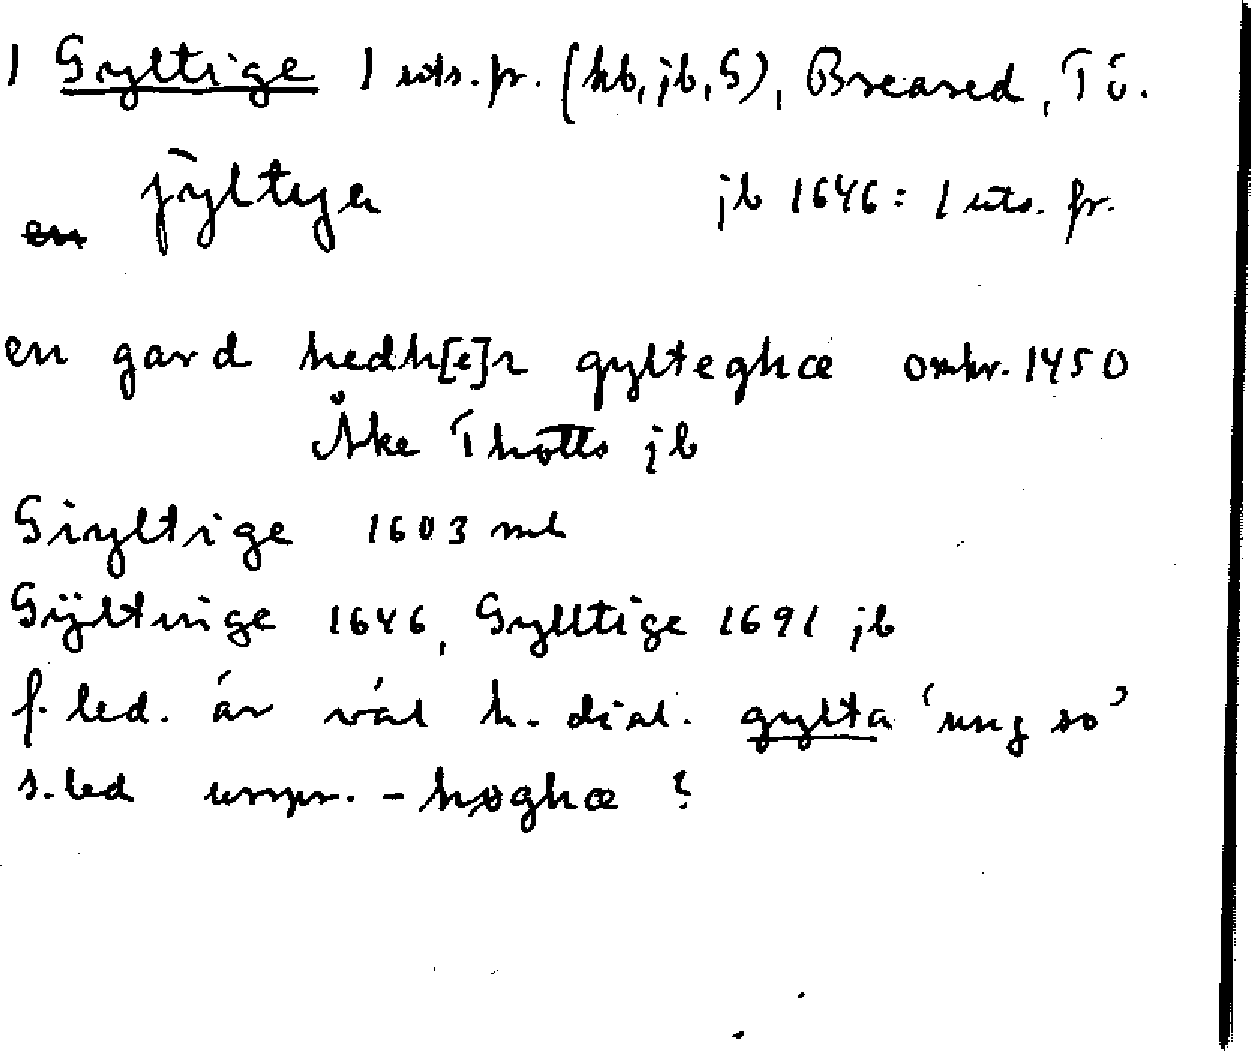 1 Gyltige 1 uts. fr. (kb, jb, S), Breared, Tö.
jyltija
jb 1646: 1 uts. fr.
en
en gard hedh[e]r gylteghæ omkr. 1450
Åke Thotts jb
Giyltige 1603 ml
Gÿltnige 1646, Gylltige 1691 jb
f. led. är väl h. dial. gylta 'ung so'
s. led urspr. - høghæ ?